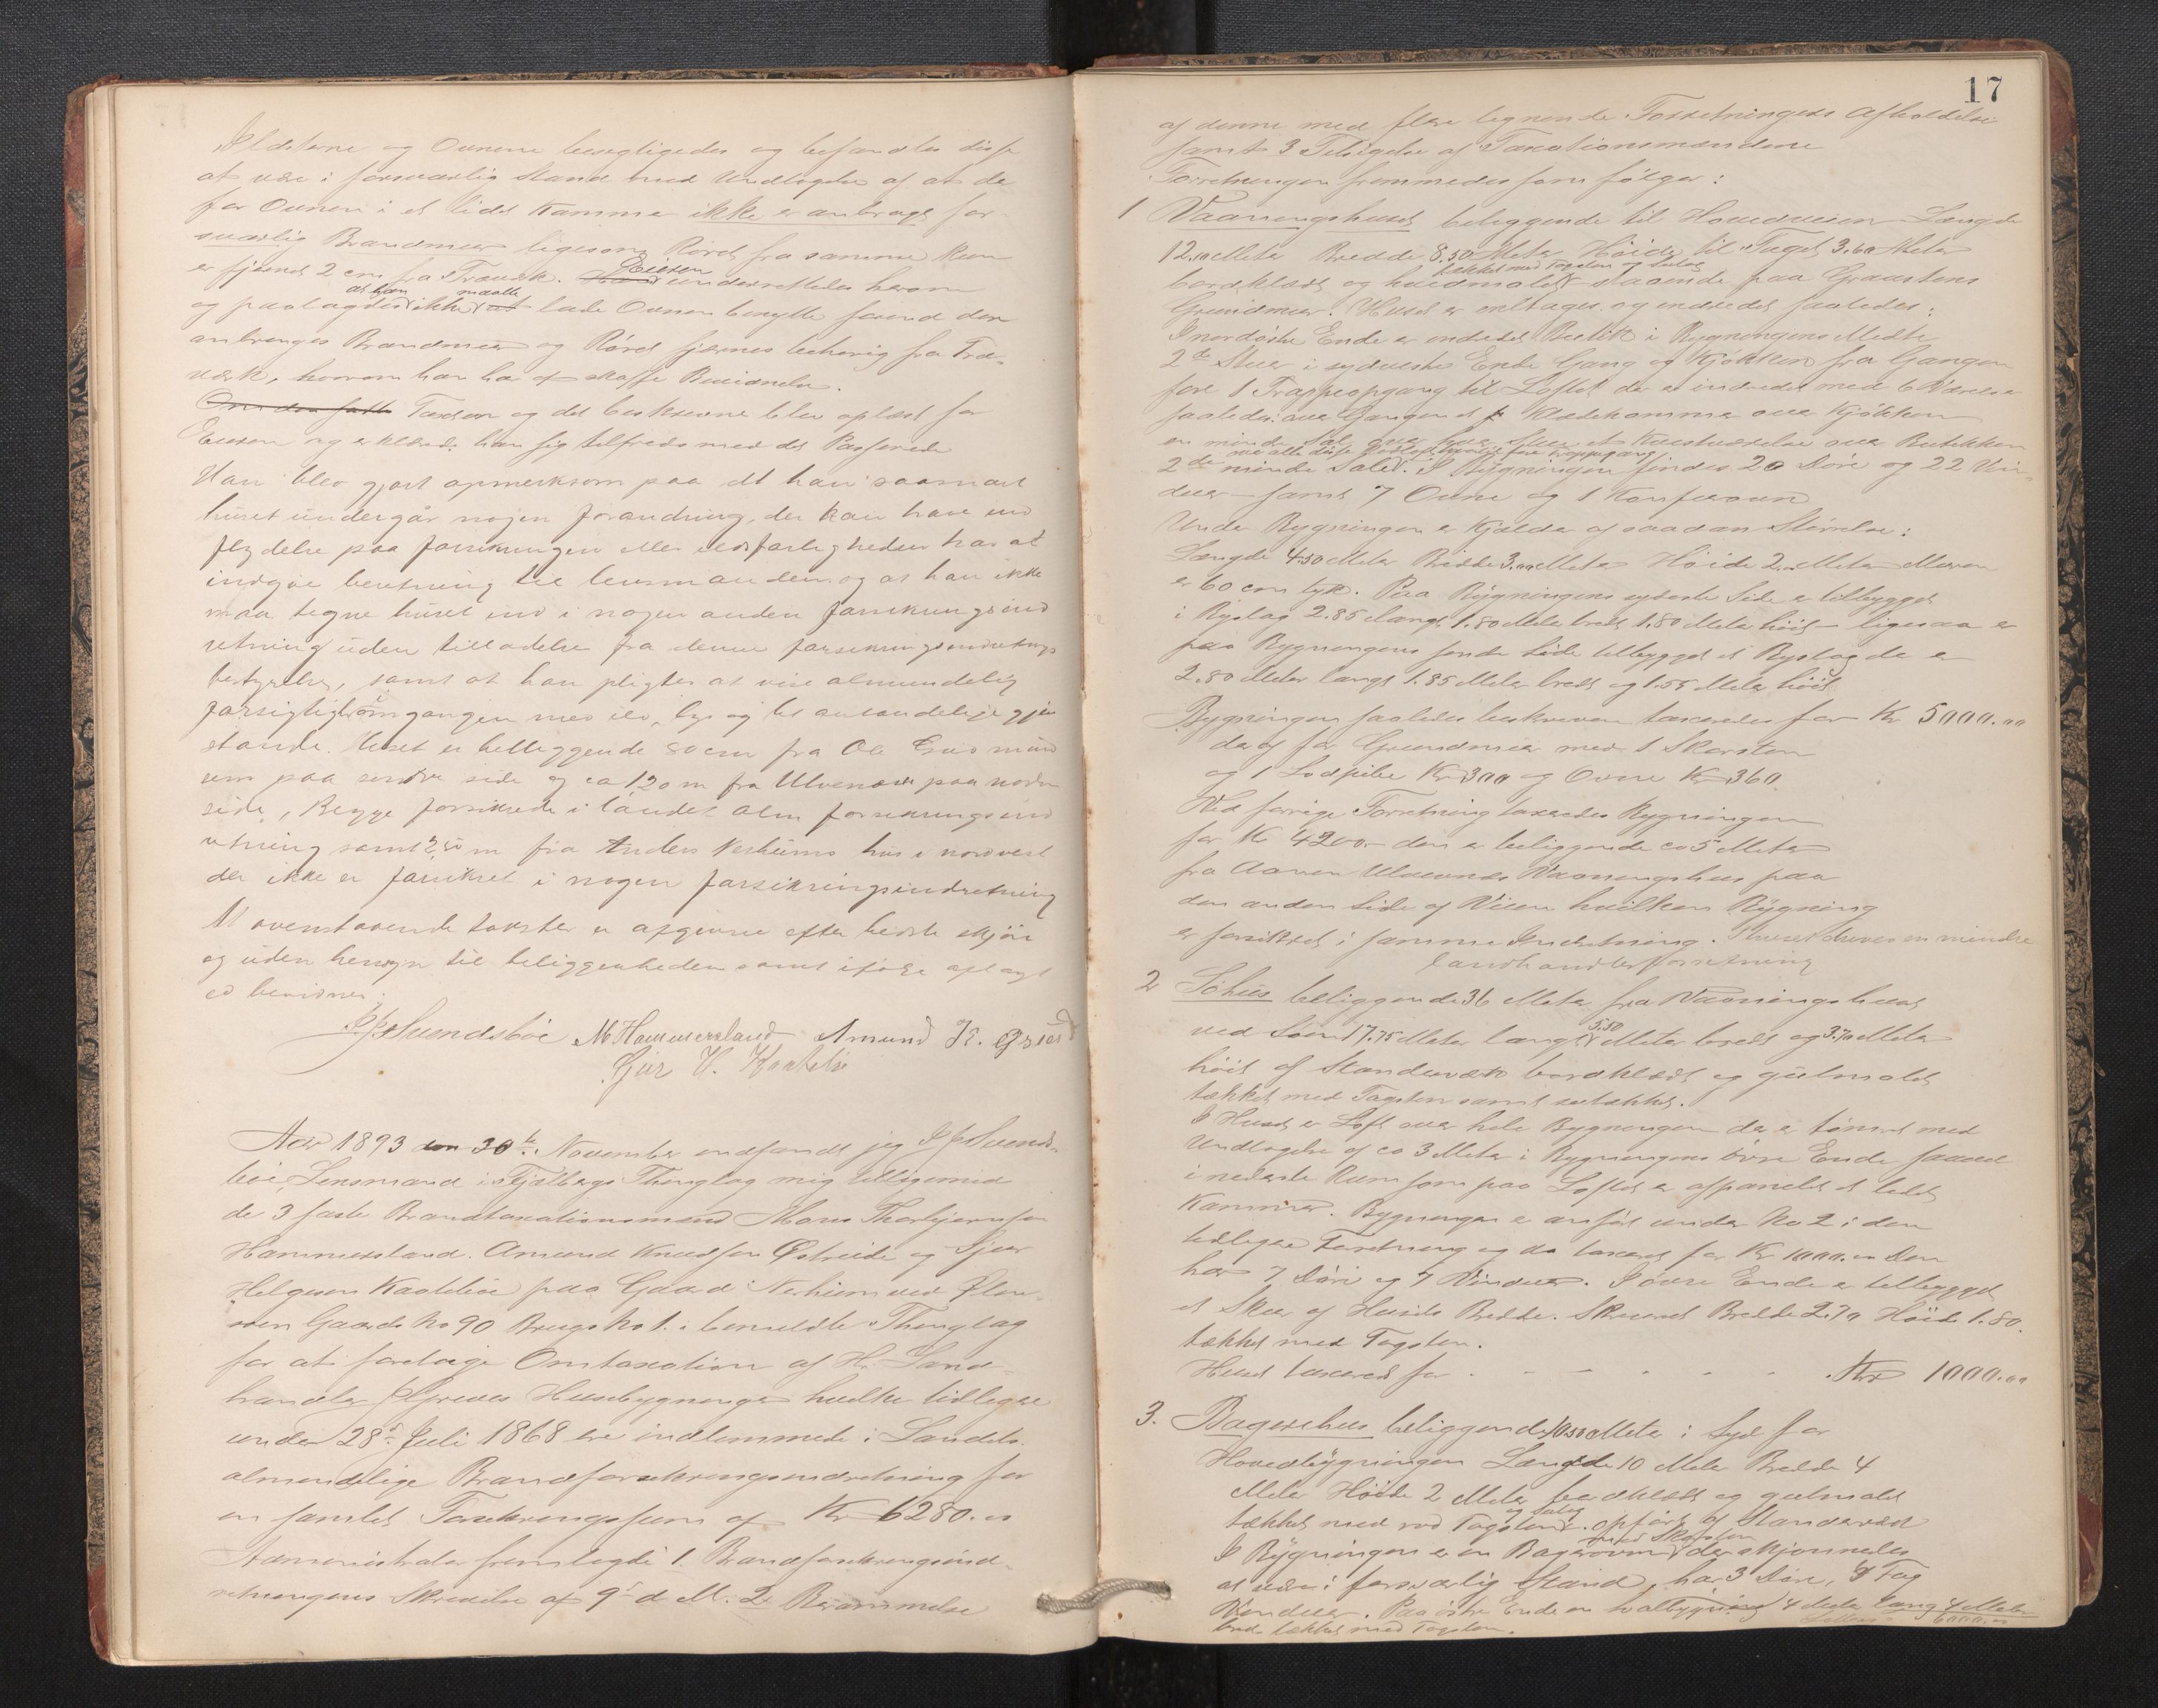 Ildstene og Ovnene besigtigedes og befandtes disse
at være i forsvarlig Stand med Undtagelse af at de
for Ovnen i et lidet Kammer ikke er anbragt for
svarlig Brandmuur ligesom Røret fra samme kun
er fjernet 2 cm fra Trævæk. Eieren underrettedes herom
og paalagdes at han ikke maatte lade Ovnen benytte forend der
anbringes Brandmuur og Røret fjernes behørig fra Træ-
værk, hvorom han har at skaffe Bevidnelse.
Taxten og det beskrevne blev oplæst for
Eieren og erklærede han sig tilfreds med det Passerede
Han blev gjort opmerksom paa at han saasnart
huset undergår nogen forandring, der kan have ind
flydelse paa forsikringen eller ildsfarligheden har at
indgive beretning til lensmanden og at han ikke
maa tegne huset ind i nogen anden forsikringsind
retning uden tilladelse fra denne forsikringsindretnings
bestyrelse, samt at han pligter at vise almindelig
forsigtighed i omgangen med ild, lys og let antændelige gjen
stande. Huset er beliggende 80 cm fra Ole
paa søndre side og ca 120 m fra Ulvenes paa nordre
side, Begge forsikrede i landets alm forsikringsind
retning samt 2,50 m fra Anders Nerheims hus i nordvest
der ikke er forsikret i nogen forsikringsindretning
At ovenstaaende takster er afgivne efter bedste skjøn
og uden hensyn til beliggenheden samt ifølge aflagt
ed bevidnes:
Svendsbøe M Hammersland Amund K. Østreid
Sjur H. Kaatebø
Aar 1893 den 30te November indfandt jeg I J Svends-
bøe, Lensmand i Fjelbergs Thinglag mig tilligemed
de 3 faste Brandtaxationsmænd Mons Thorbjørnsen
Hammersland. Amund Knudsen Østreide og Sjur
Helgesen Kaatebøe paa Gaard Nerheim ved Ølen
Gaards No 90 Brugs No 1. i bemeldte Thinglag
for at foretage Omtaxation af Hr. Land-
handler Huusbygninger hvilke tidligere
under 28de Juli 1868 ere indlemmede i Landets
almindelige Brandforsikringsindretning for
en samlet Forsikringssum af Kr 6280.00
Administrator fremlagde 1. Brandforsikringsind-
retningens Skrivelse af 9de d. M. 2 Berammelse
17
af denne med flere lignende Forretningers Afholdelse
samt 3 Tilsigelse af Taxationsmændene
Forretningen fremmedes som følger:
1 Vaaningshuset beliggende til Hovedveien Længde
12.10 Meter Bredde 8.50 Meter Høide til Taget 3.60 Meter
bordklædt og hvidmalet tækket med Tagsten og Sutag staaende paa Graastens
Grundmuur. Huset er entages og indredet saaledes:
I nordøstre Ende er indredet Butik i Bygningens Midte
2de Stuer i sydvestre Ende Gang og Kjøkken fra Gangen
fører 1 Trappeopgang til Loftet der er indredet med 6 Værelser
saaledes: over Gangen et Klædekammer over Kjøkken
en mindre Sal over hver Stue et Kvistværelse over Butikken
2de mindre Sale. I Bygningen findes 20 Døre og 22 Vin-
duer samt 7 Ovne og 1 Komfuurovn
Under Bygningen er Kjelder af saadan Størrelse:
Længde 4.50 Meter Bredde 3.00 Meter Høide 2.00 Meter Muren
er 60 cm tyk. Paa Bygningens sydøstre Side er tilbygget
i Bislag 2.85 langt 1.80 Meter bredt 1.80 Meter høit - ligesaa er
paa Bygningens søndre Side tilbygget et Bislag der er
2.80 Meter langt 1.85 Meter bredt og 1.55 Meter høit
Bygningen saaledes beskreven taxeredes for Kr 5000.00
deraf for Grundmuur med 1 Skorsten
og 1 Lodpibe Kr 300 og Ovne Kr 360.
Ved forrige Forretning taxeredes Bygningen
for Kr 4200.- den er beliggende ca 5 Meter
fra Aanen Ulvenes Vaaningshus paa
den anden Side af Veien hvilken Bygning
er forsikret i samme Indretning. I huset drives en mindre
landhandlerforretning
2 Søhus beliggende 36 Meter fra Vaaningshuset
ved Søen 17.75 Meter langt 5.50 Meter bredt og 3.70 Meter
høit af Standervæk bordklædt og gulmalet
tækket med Tagsten samt sutækket.
I Huset er Loft over hele Bygningen der er tømret med
Undtagelse af ca 3 Meter i Bygningens øvre Ende saavel
i nederste Rum som paa Loftet er afpanelet et lidet
Kammer. Bygningen er anført under No 2 i den
tidligere Forretning og da taxeret for Kr 1000.00 Den
har 7 Døre og 7 Vinduer. I øvre Ende er tilbygget
et Skur af Husets Bredde. Skurets Bredde 2.70 Høide 1.80.
tækket med Tagsten.
Huset taxeret for - - - - - - Kr 1000.00
3. Bagerhus beliggende 10.50 Meter i Syd for
Hovedbygningen Længde 10 Meter Bredde 4
Meter Høide 2 Meter bordklædt og gulmalet
tækket med rød Tagsten og Sutag opført af Standervæk
I Bygningen er en Bagerovn med Skorsten der skjønnedes
at være i forsvarlig Stand, har 3 Døre, 8 Fag
Vinduer. Paa østre Ende en halvbygning 4 Meter lang 4 Meter
bred tækket med Tagsten. 6000.00